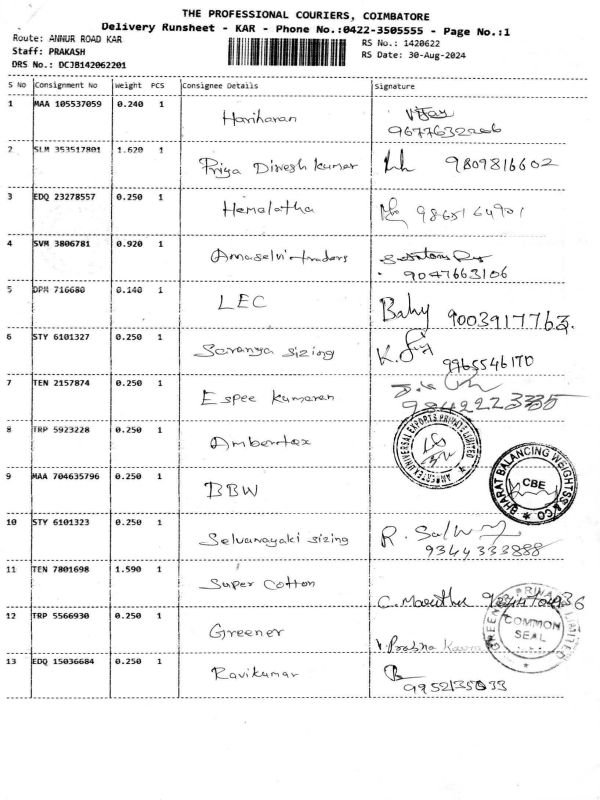 THE PROFESSIONAL COURIERS, COIMBATORE
Delivery Runsheet - KAR - Phone No.:0422-3505555 - Page No.:1
Route: ANNUR ROAD KAR
Staff: PRAKASH
DRS No.: DCJB142062201
RS No.: 1420622
RS Date: 30-Aug-2024
S No Consignment No Weight PCS Consignee Details Signature
1 MAA 105537059 0.240 1 Hariharan
2 SLM 353517801 1.620 1 Priya Dinesh kumar 9809816602
3 EDQ 23278557 0.250 1 Hemalatha 9865164901
4 SVM 3806781 0.920 1 Amaselvi traders
9047663106
5 DPM 716680 0.140 1 LEC Baby 9003917763.
6 STY 6101327 0.250 1 Saranya sizing K. 9965546170
7 TEN 2157874 0.250 1 Espee kumaran
8 TRP 5923228 0.250 1 Ambertex
AMBERTEX UNIVERSAL EXPORTS PRIVATE LIMITED
9 MAA 704635796 0.250 1 BBW
BHARAT BALANCING WEIGHTSS & CO
CBE
10 STY 6101323 0.250 1 Selvanayaki sizing R.
9344333888
11 TEN 7801698 1.590 1 Super Cotton C. Maruthu
12 TRP 5566930 0.250 1 Greener V. Prabha
COMMON
SEAL
13 EDQ 15036684 0.250 1 Ravikumar
9952135033